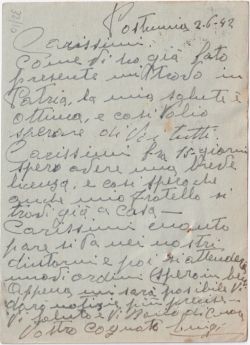 Postumia 2-6-42
Carissimi.
Come vi ho già fato
presente mi trovo in
Patria, la mia salute è
ottima, e così voglio
sperare di Voi tutti.
Carissimi fra 15 giorni
spero avere una breve
licenza, e così spero che
anche mio fratello si
trovi già a casa—
Carissimi quanto
pare si va nei nostri
dintorni e poi si attende
nuovi ordini (spero in bene)
Appena mi sarà posibile Vi
darò notizie più precise—
Vi saluto e Vi bacio di cuore
Vostro Cognato Luigi